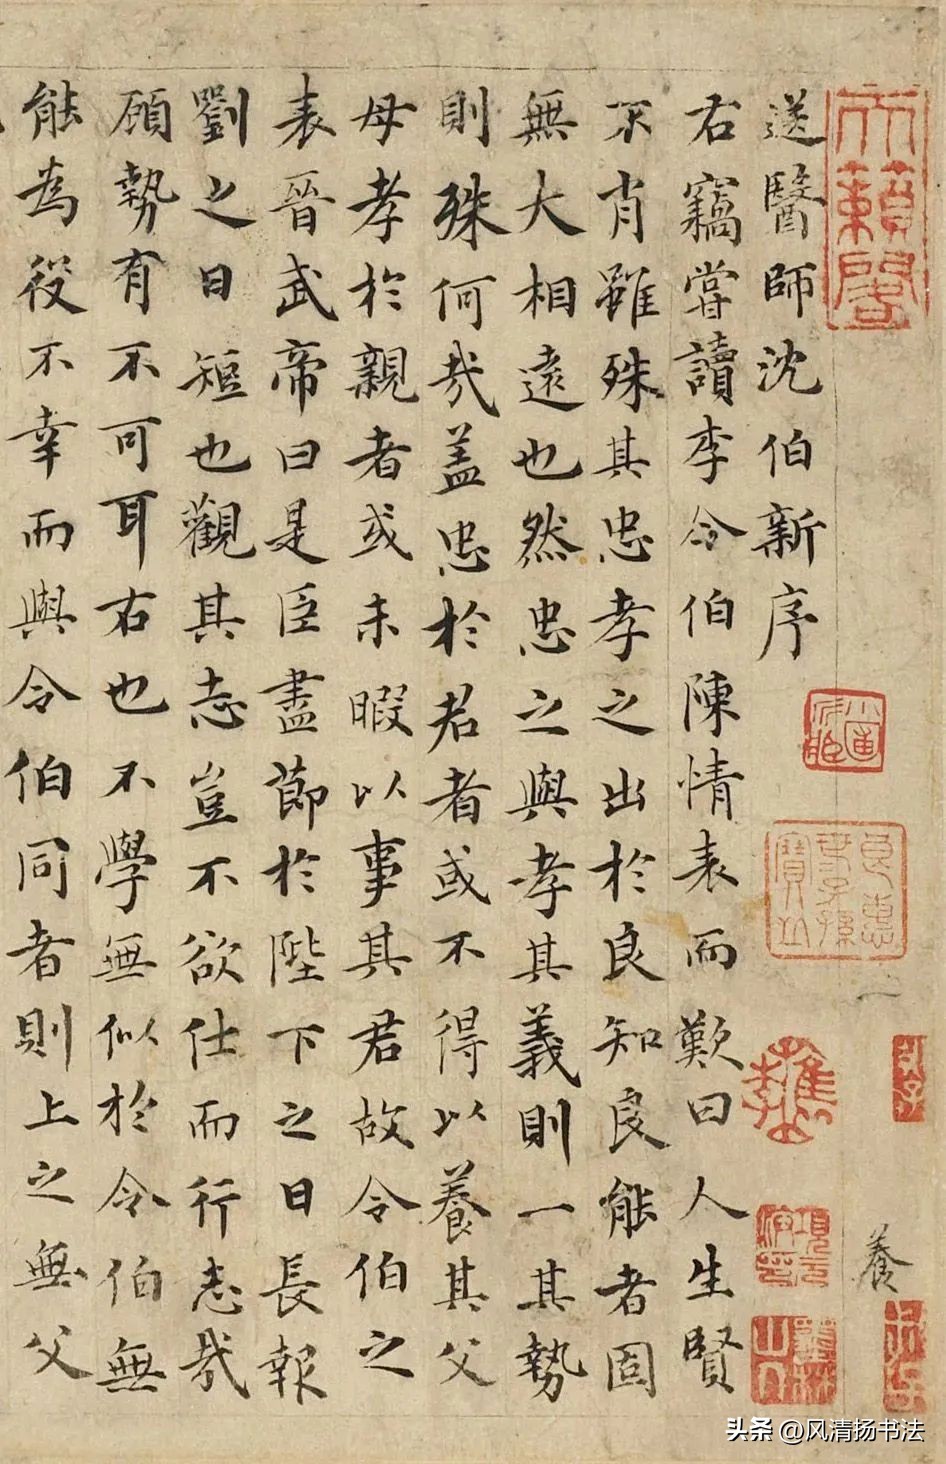 送醫師沈伯新序
右竊嘗讀李令伯陳情表而歎曰人生賢
不肖雖殊其忠孝之出於良知良能者固
無大相遠也然忠之與孝其義則一其勢
則殊何哉蓋忠於君者或不得以養其父
母孝於親者或未暇以事其君故令伯之
表晉武帝曰是臣盡節於陛下之日長報
劉之日短也觀其志豈不欲仕而行志哉
顧勢有不可耳右也不學無似於令伯無
能為役不幸而與令伯同者則上之無父
天籟閣
養
項元汴印
墨林山人
头条 @风清扬书法